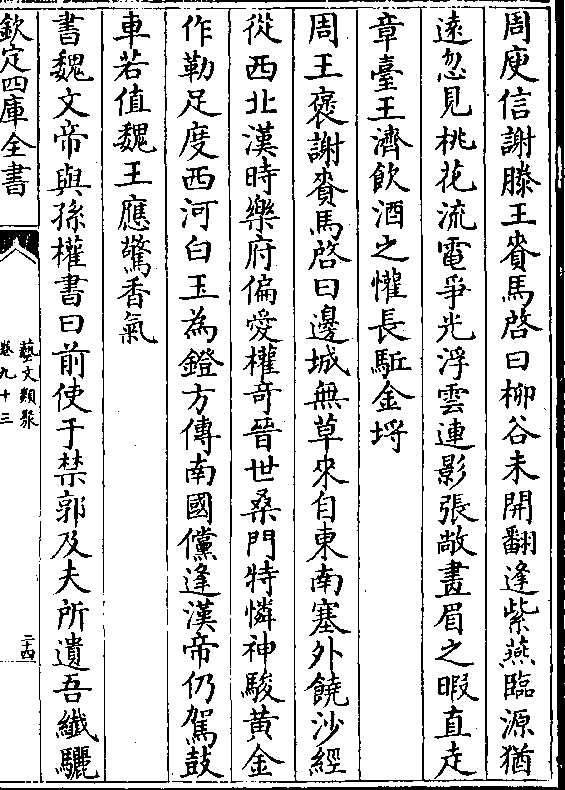 周庾信謝滕王賚馬啓曰柳谷未開翻逢紫燕臨源猶
遠忽見桃花流電爭光浮雲連影張敞畫眉之暇直走
章臺王濟飲酒之懽長駈金埒
周王褒謝賚馬啓曰邊城無草來自東南塞外饒沙經
從西北漢時樂府偏愛權竒晉世桑門特憐神駿黄金
作勒足度西河白玉為鐙方傳南國儻逢漢帝仍駕鼓
車若值魏王應驚香氣
書魏文帝與孫權書曰前使于禁郭及夫所遺吾纎驪
欽定四庫全書
藝文類聚
卷九十三
二十四